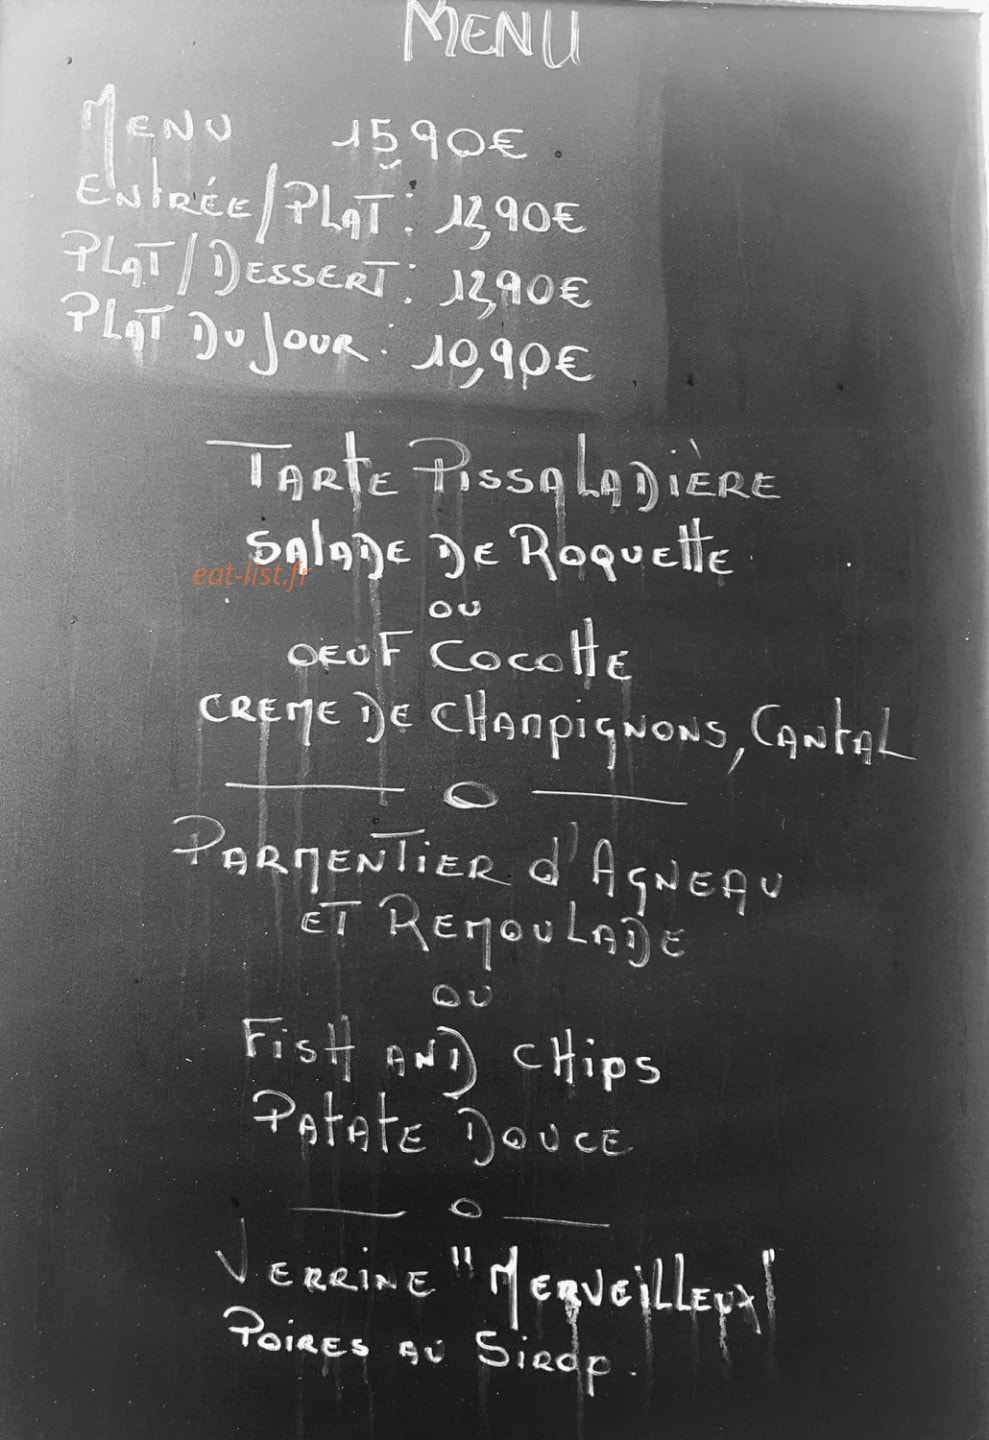 MENU
MENU 15,90€
ENTRÉE/PLAT: 12,90€
PLAT/DESSERT: 12,90€
PLAT DU JOUR: 10,90€
TARTE PISSALADIÈRE
SALADE DE ROQUETTE
eat-list.fr
OU
OEUF COCOTTE
CREME DE CHAMPIGNONS, CANTAL
O
PARMENTIER d'AGNEAU
ET REMOULADE
OU
FISH AND CHIPS
PATATE DOUCE
O
VERRINE "MERVEILLEUX"
POIRES AU SIROP.